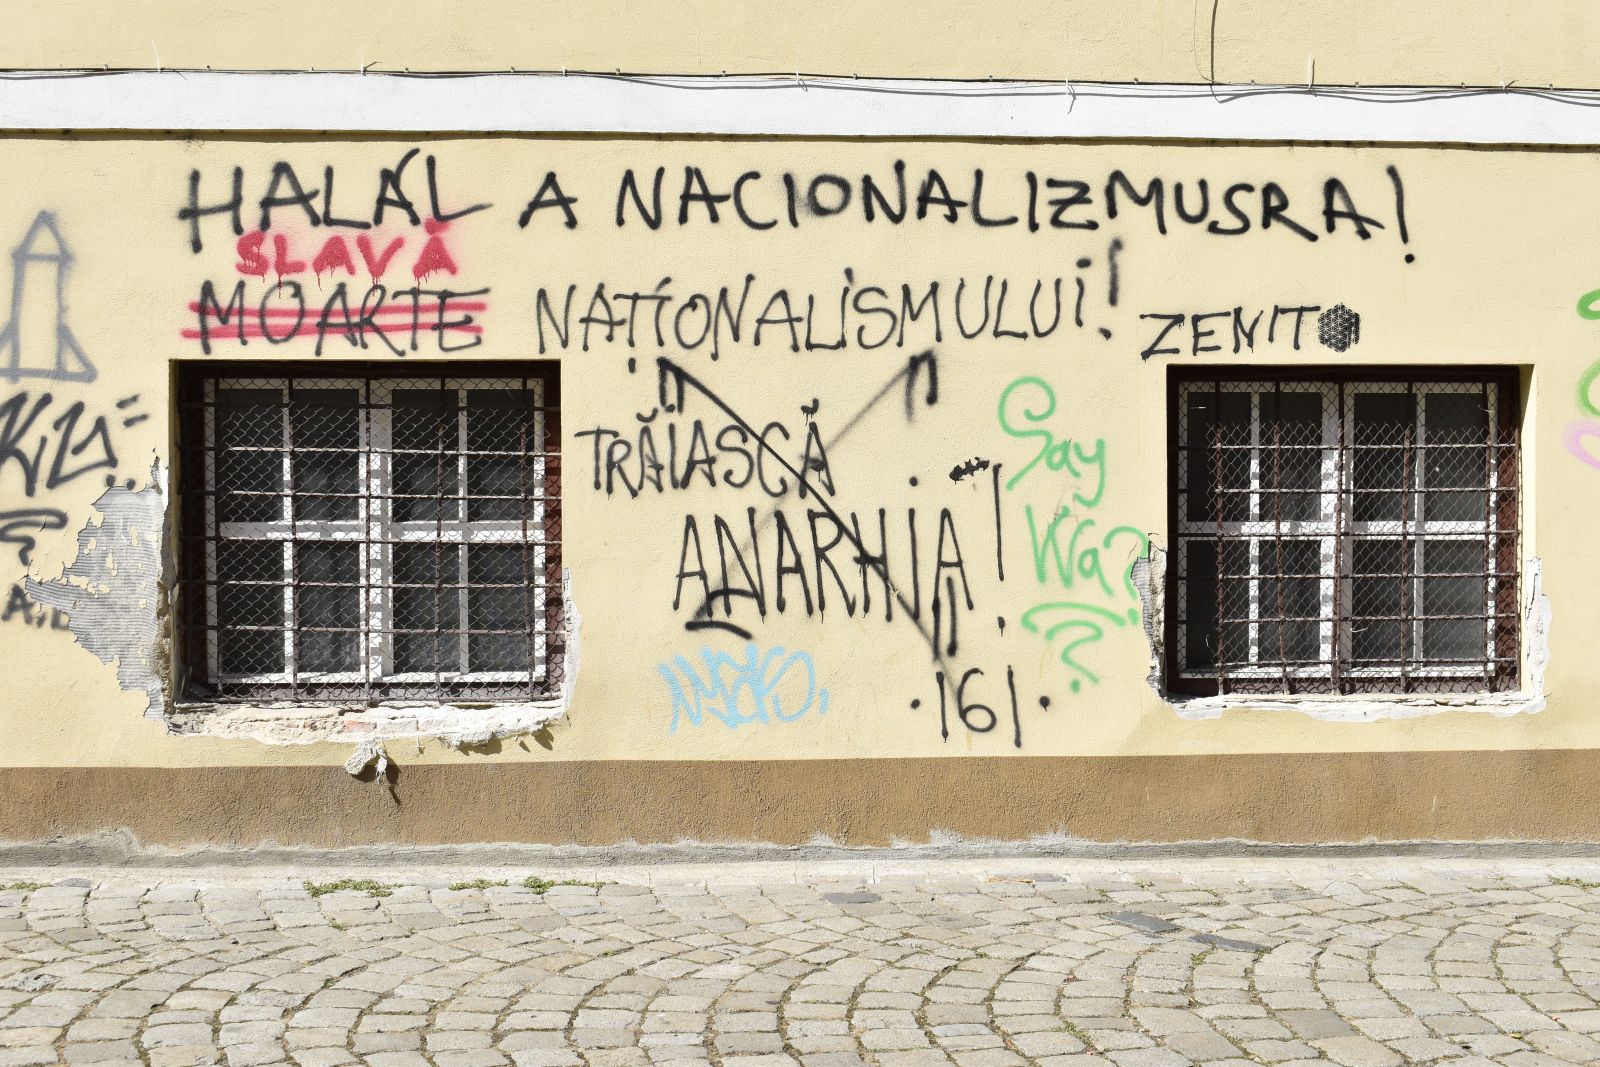 HALÁL A NACIONALIZMUSRA!
SLAVĂ
MOARTE NAȚIONALISMULUI!
ZENIT
TRĂIASCĂ
ANARHIA!
Say
Wa?
?
·161·